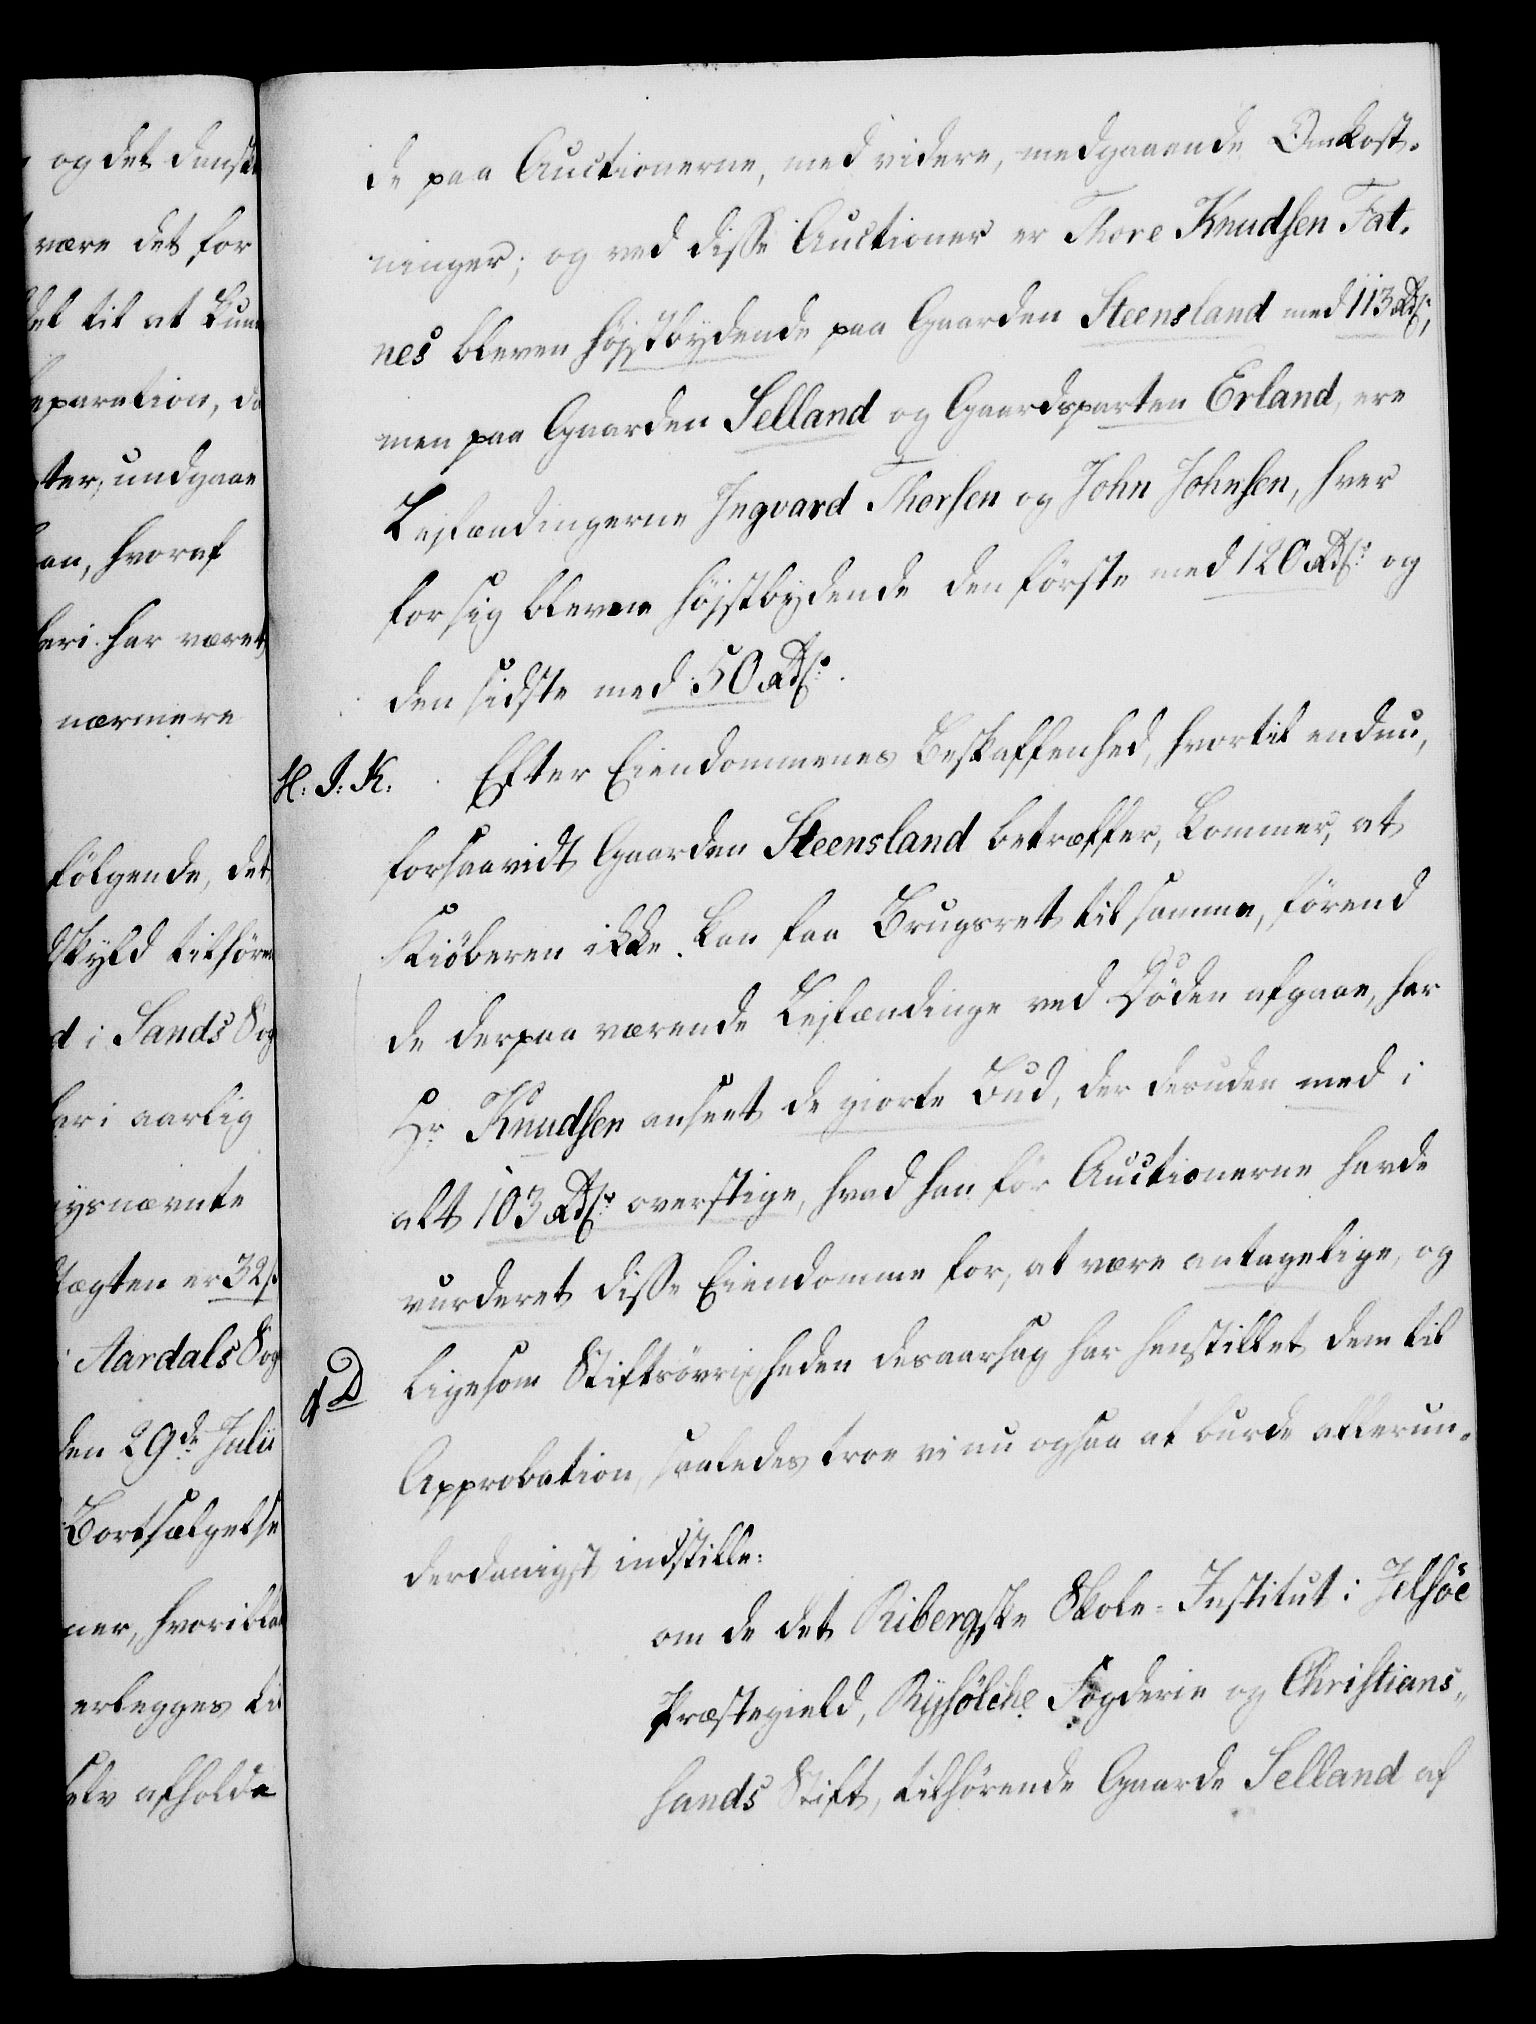 og det danske
være det for
det til at kun
eparation, da
ter, undgaae
an, hvoraf
heri har været
nærmere
følgende, det
dskyld tilhøre
d i Sands Sog
eri aarlig
nysnævnte
lægten er 32 s.
Aardals Sog
den 29de Julii
Bortsælgelse
ner, hvoriblan
erlegges til
selv afholde
de paa Auctionerne, med videre, medgaaende Omkost-
ninger; og ved disse Auctioner er Thore Knudsen Fat-
nes bleven højstbydende paa Gaarden Steensland med 113 Rd.,
men paa Gaarden Selland og Gaardsparten Erland, ere
Leilændingerne Ingvard Thorsen og John Johnsen, hver
for sig blevne højstbydende den første med 120 Rd. og
den sidste med 50 Rd.
H: I: K: Efter Eiendommenes Beskaffenhed, hvortil endnu,
forsaavidt Gaarden Steensland betræffer, kommer, at
Kiøberen ikke kan faa Brugsret til samme, førend
de derpaa værende Leilændinge ved Døden afgaae, har
Hr. Knudsen anseet de giorte Bud, der desuden med i
alt 103 Rd. overstige, hvad han før Auctionerne havde
vurderet disse Eiendomme for, at være antagelige, og
ligesom Stiftsøvrigheden desaarsag har henstillet dem til
Approbation, saaledes troe vi nu ogsaa at burde allerun-
derdanigst indstille:
om de det Ribergske Skole-Institut i Jelsöe
Præstegield, Ryefölche Fogderie og Christians-
sands Stift, tilhørende Gaarde Selland af